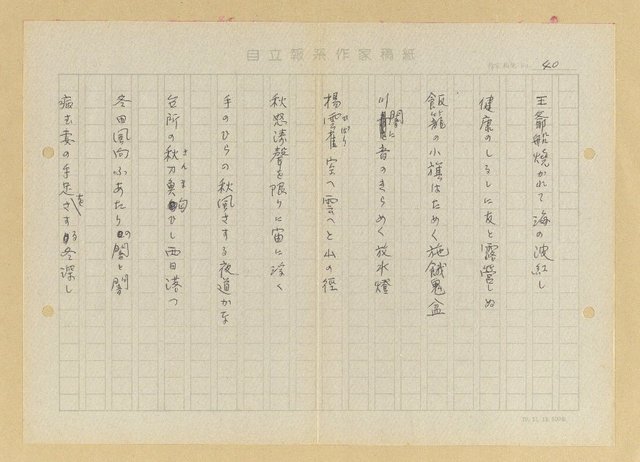 自立報系作家稿紙
40
王爺船焼かれて海の波紅し
健康のしるしに友と露営しぬ
飯籠の小旗はためく施餓鬼盆
川闇に音のきらめく放水燈
揚雲雀空へ雲へと山の径
ひばり
秋怒涛聲を限りに宙に泣く
手のひらの秋風さする夜道かな
台所の秋刀魚匂ひし西日港つ
さんま
冬田風向ふあたりの闇と闇
病む妻の手足をさする冬深し